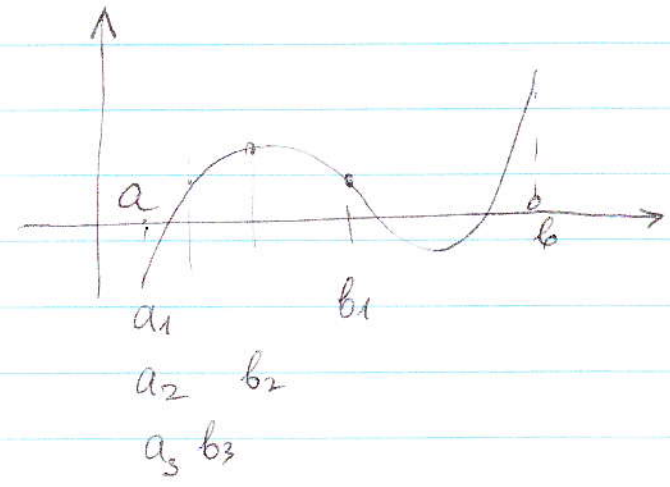 a
b
a1 b1
a2 b2
a3 b3